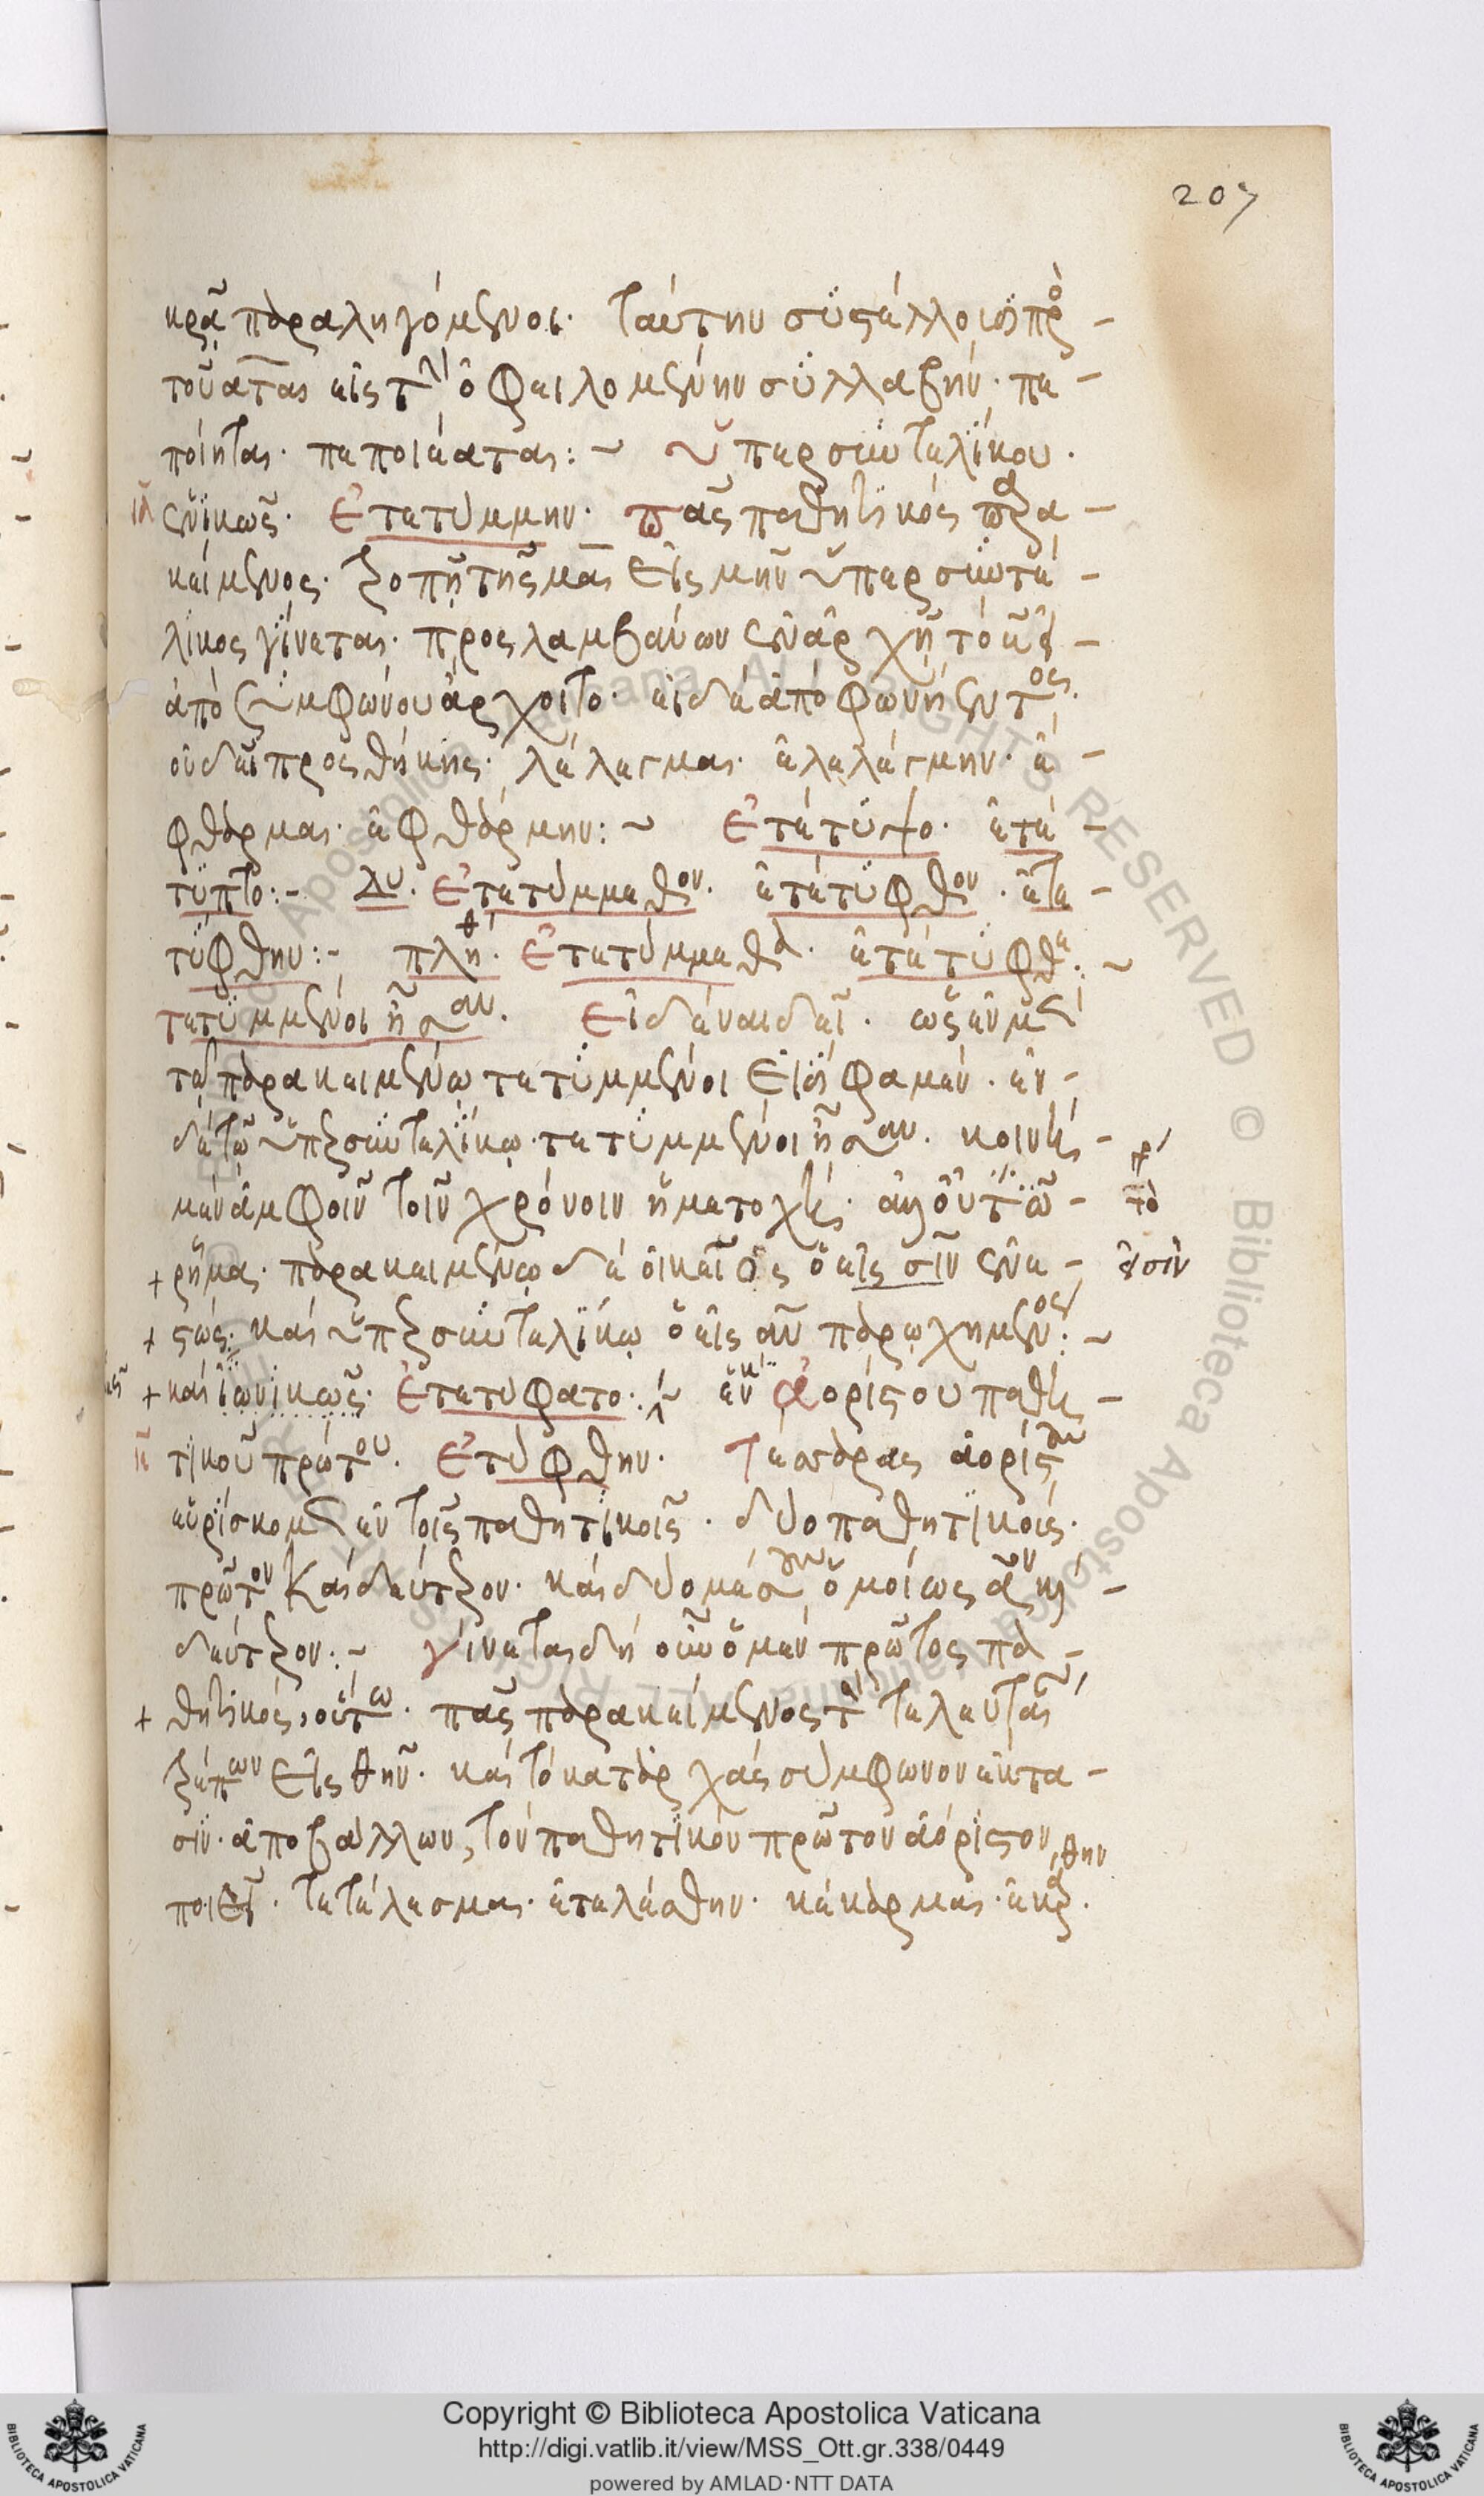 207
κρᾷ παραληγόμενοι. ταύτην συστέλλουσι πρὸ
τοῦ αται εἰς τὴν ὀφειλομένην συλλαβήν. πε
ποίηται. πεποιέαται:~ ὑπερσυντελίκου.
ἑνικῶς. ἐτετύμμην. πᾶς παθητικὸς παρα
κείμενος. τροπῇ τῆς μαι εἰς μην ὑπερσυντέ
λικος γίνεται. προσλαμβάνων ἐν ἀρχῇ τὸ ε εἰ
ἀπὸ συμφώνου ἄρχοιτο. εἰ δὲ ἀπὸ φωνήεντος.
οὐ δεῖ προσθήκης. λέλεγμαι. ἐλελέγμην. ἔ
φθαρμαι. ἐφθάρμην:~ ἐτέτυψο. ἐτέ
τυπτο:- δυ. ἐτετύμμεθον. ἐτέτυφθον. ἐτε
τύφθην:- πλη. ἐτετύμμεθα. ἐτέτυφθε:~
τετυμμένοι ἦσαν. εἰδέναι δεῖ. ὡς ἐν μὲν
τῷ παρακειμένῳ τετυμμένοι εἰσί φαμεν. ἐν
δὲ τῷ ὑπερσυντελίκῳ. τετυμμένοι ἦσαν. κοινὴ
μὲν ἀμφοῖν τοῖν χρόνοιν ἡ μετοχή.
ῥῆμα. παρακειμένῳ δὲ οἰκεῖος ὁ εἰσιν ἐνε
στώς. καὶ ὑπερσυντελίκῳ ὁ εἰς αν παρῳχημένος:~
καὶ ἰωνικῶς. ἐτετύφατο:~ ἑνικ ἀορίστου παθη
τικοῦ πρώτου. ἐτύφθην. τέσσαρας ἀορίστους
εὑρίσκομεν ἐν τοῖς παθητικοῖς. δύο παθητικούς.
πρῶτον καὶ δεύτερον. καὶ δύο μέσους ὁμοίως αον καὶ
δεύτερον:~ γίνεται δὴ οὖν ὁ μὲν πρῶτος πα
θητικὸς, οὕτω. πᾶς παρακείμενος τὰ τελευταῖα
τρέπων εἰς θην. καὶ τὸ κατ' ἀρχὰς σύμφωνον ἐκτα
σιν. ἀποβάλλων, τὸν παθητικὸν πρῶτον ἀόριστον
θην
ποιεῖ. τετέλεσμαι. ἐτελέσθην. κέκαρμαι. ἐκάρ.
Copyright © Biblioteca Apostolica Vaticana
http://digi.vatlib.it/view/MSS_Ott.gr.338/0449
powered by AMLAD·NTT DATA